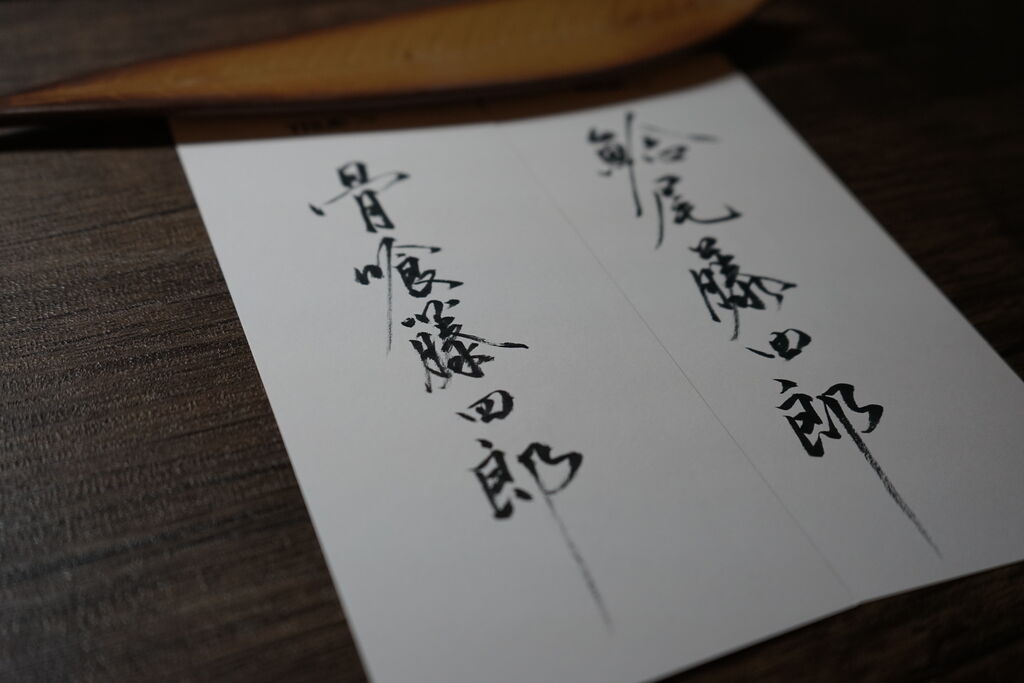 鯰尾藤四郎
骨喰藤四郎